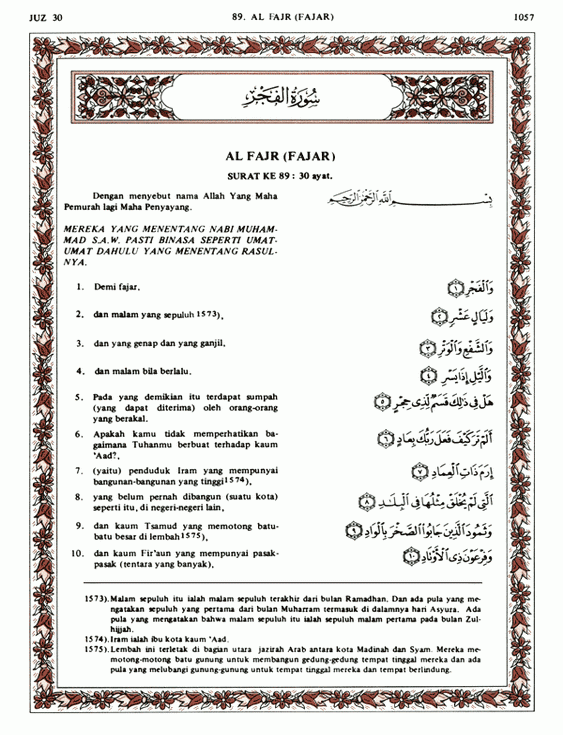 JUZ 30
89. AL FAJR (FAJAR)
1057
سُورَةُ الْفَجْرِ
AL FAJR (FAJAR)
SURAT KE 89 : 30 ayat.
Dengan menyebut nama Allah Yang Maha
Pemurah lagi Maha Penyayang.
بِسْمِ اللَّهِ الرَّحْمَٰنِ الرَّحِيمِ
MEREKA YANG MENENTANG NABI MUHAM-
MAD S.A.W. PASTI BINASA SEPERTI UMAT-
UMAT DAHULU YANG MENENTANG RASUL-
NYA.
1. Demi fajar,
وَالْفَجْرِ ۝١
2. dan malam yang sepuluh 1573),
وَلَيَالٍ عَشْرٍ ۝٢
3. dan yang genap dan yang ganjil,
وَالشَّفْعِ وَالْوَتْرِ ۝٣
4. dan malam bila berlalu.
وَاللَّيْلِ إِذَا يَسْرِ ۝٤
5. Pada yang demikian itu terdapat sumpah
(yang dapat diterima) oleh orang-orang
yang berakal.
هَلْ فِي ذَٰلِكَ قَسَمٌ لِذِي حِجْرٍ ۝٥
6. Apakah kamu tidak memperhatikan ba-
gaimana Tuhanmu berbuat terhadap kaum
'Aad?,
أَلَمْ تَرَ كَيْفَ فَعَلَ رَبُّكَ بِعَادٍ ۝٦
7. (yaitu) penduduk Iram yang mempunyai
bangunan-bangunan yang tinggi1574),
إِرَمَ ذَاتِ الْعِمَادِ ۝٧
8. yang belum pernah dibangun (suatu kota)
seperti itu, di negeri-negeri lain,
الَّتِي لَمْ يُخْلَقْ مِثْلُهَا فِي الْبِلَادِ ۝٨
9. dan kaum Tsamud yang memotong batu-
batu besar di lembah1575),
وَثَمُودَ الَّذِينَ جَابُوا الصَّخْرَ بِالْوَادِ ۝٩
10. dan kaum Fir'aun yang mempunyai pasak-
pasak (tentara yang banyak),
وَفِرْعَوْنَ ذِي الْأَوْتَادِ ۝١٠
1573).Malam sepuluh itu ialah malam sepuluh terakhir dari bulan Ramadhan. Dan ada pula yang me-
ngatakan sepuluh yang pertama dari bulan Muharram termasuk di dalamnya hari Asyura. Ada
pula yang mengatakan bahwa malam sepuluh itu ialah sepuluh malam pertama pada bulan Zul-
hijjah.
1574).Iram ialah ibu kota kaum 'Aad.
1575).Lembah ini terletak di bagian utara jazirah Arab antara kota Madinah dan Syam. Mereka me-
motong-motong batu gunung untuk membangun gedung-gedung tempat tinggal mereka dan ada
pula yang melubangi gunung-gunung untuk tempat tinggal mereka dan tempat berlindung.